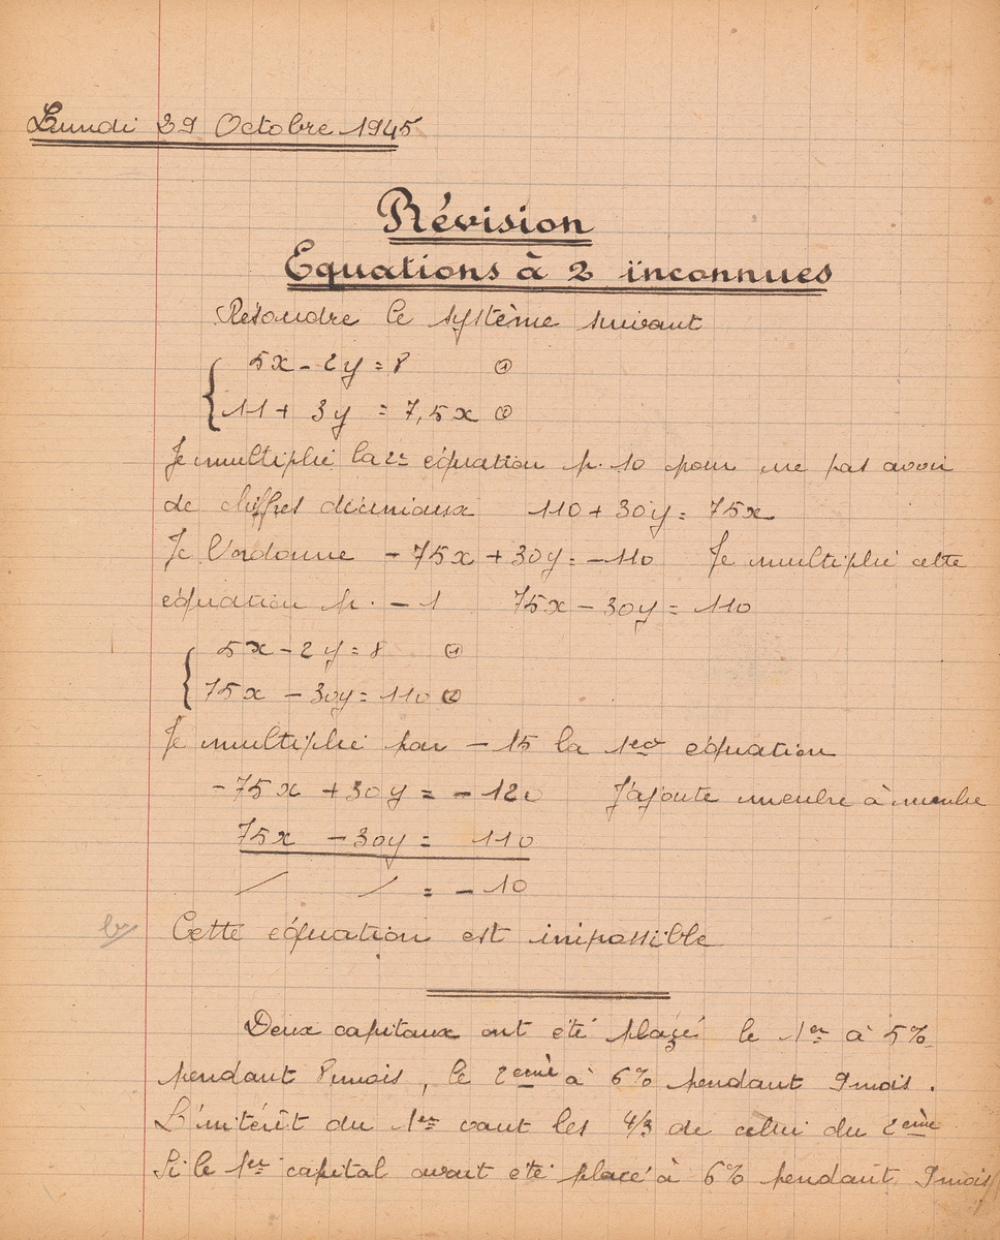 Lundi 29 Octobre 1945
Révision
Equations à 2 inconnues
Résoudre le système suivant
5x - 2y = 8 ①
11 + 3y = 7,5x ②
Je multiplie la 2e équation p. 10 pour ne pas avoir
de chiffres décimaux 110 + 30y = 75x
Je l'ordonne - 75x + 30y = - 110 Je multiplie cette
équation p. - 1 75x - 30y = 110
5x - 2y = 8 ①
75x - 30y = 110 ②
Je multiplie par - 15 la 1ère équation
- 75x + 30y = - 120 J'ajoute membre à membre
75x - 30y = 110
/ / = - 10
Cette équation est impossible
Deux capitaux ont été plaçé le 1er à 5%
pendant 8 mois, le 2ème à 6% pendant 9 mois.
L'intérêt du 1er vaut les 4/3 de celui du 2ème
Si le 1er capital avait été placé à 6% pendant 9 mois